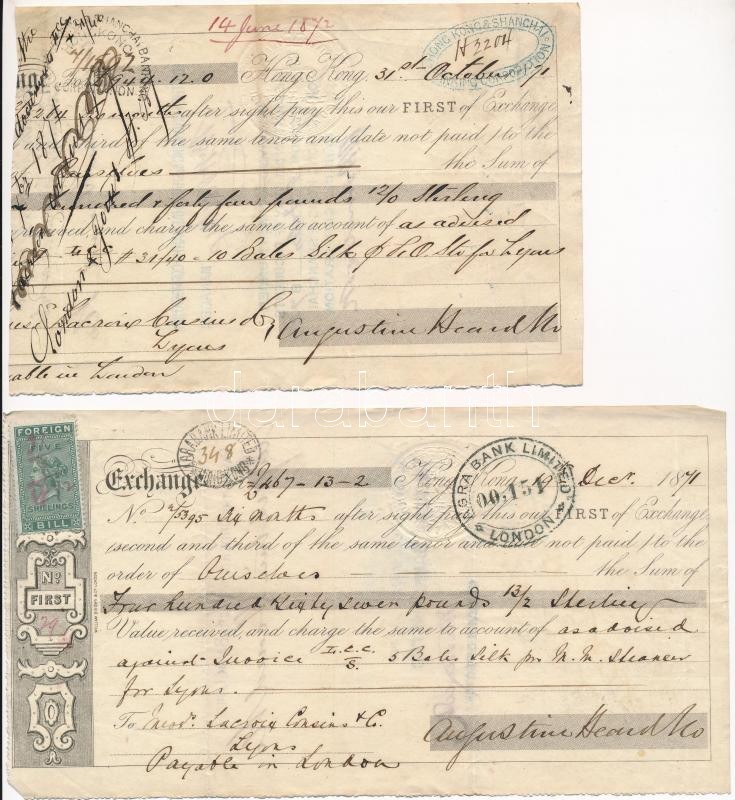 14 June 1872
HONG KONG & SHANGHAI
BANKING CORPORATION
H3204
Hong Kong, 31st October
months after sight pay this our FIRST of Exchange
third of the same tenor and date not paid) to the
Ourselves the Sum of
hundred & forty four pounds 12/0 Sterling
and charge the same to account of as advised
# 31/40 - 10 Bales Silk P & O. Str for Lyons
Lacroix Cousins & Co
Augustine Heard & Co
Lyons
payable in London
darabanth
FOREIGN
FIVE
SHILLINGS
BILL
No
FIRST
29
348
AGRA BANK LIMITED
00.151
LONDON
Exchange £467-13-2 Hong Kong, Decr. 1871
No Six months after sight pay this our FIRST of Exchange
(second and third of the same tenor and date not paid) to the
order of Ourselves the Sum of
Four hundred & sixty seven pounds 13/2 Sterling
Value received, and charge the same to account of as advised
against Invoice L.C.C. 5 Bales Silk pr M.M. Steamer
for Lyons.
To Messrs. Lacroix Cousins & Co.
Augustine Heard & Co
Lyons
Payable in London